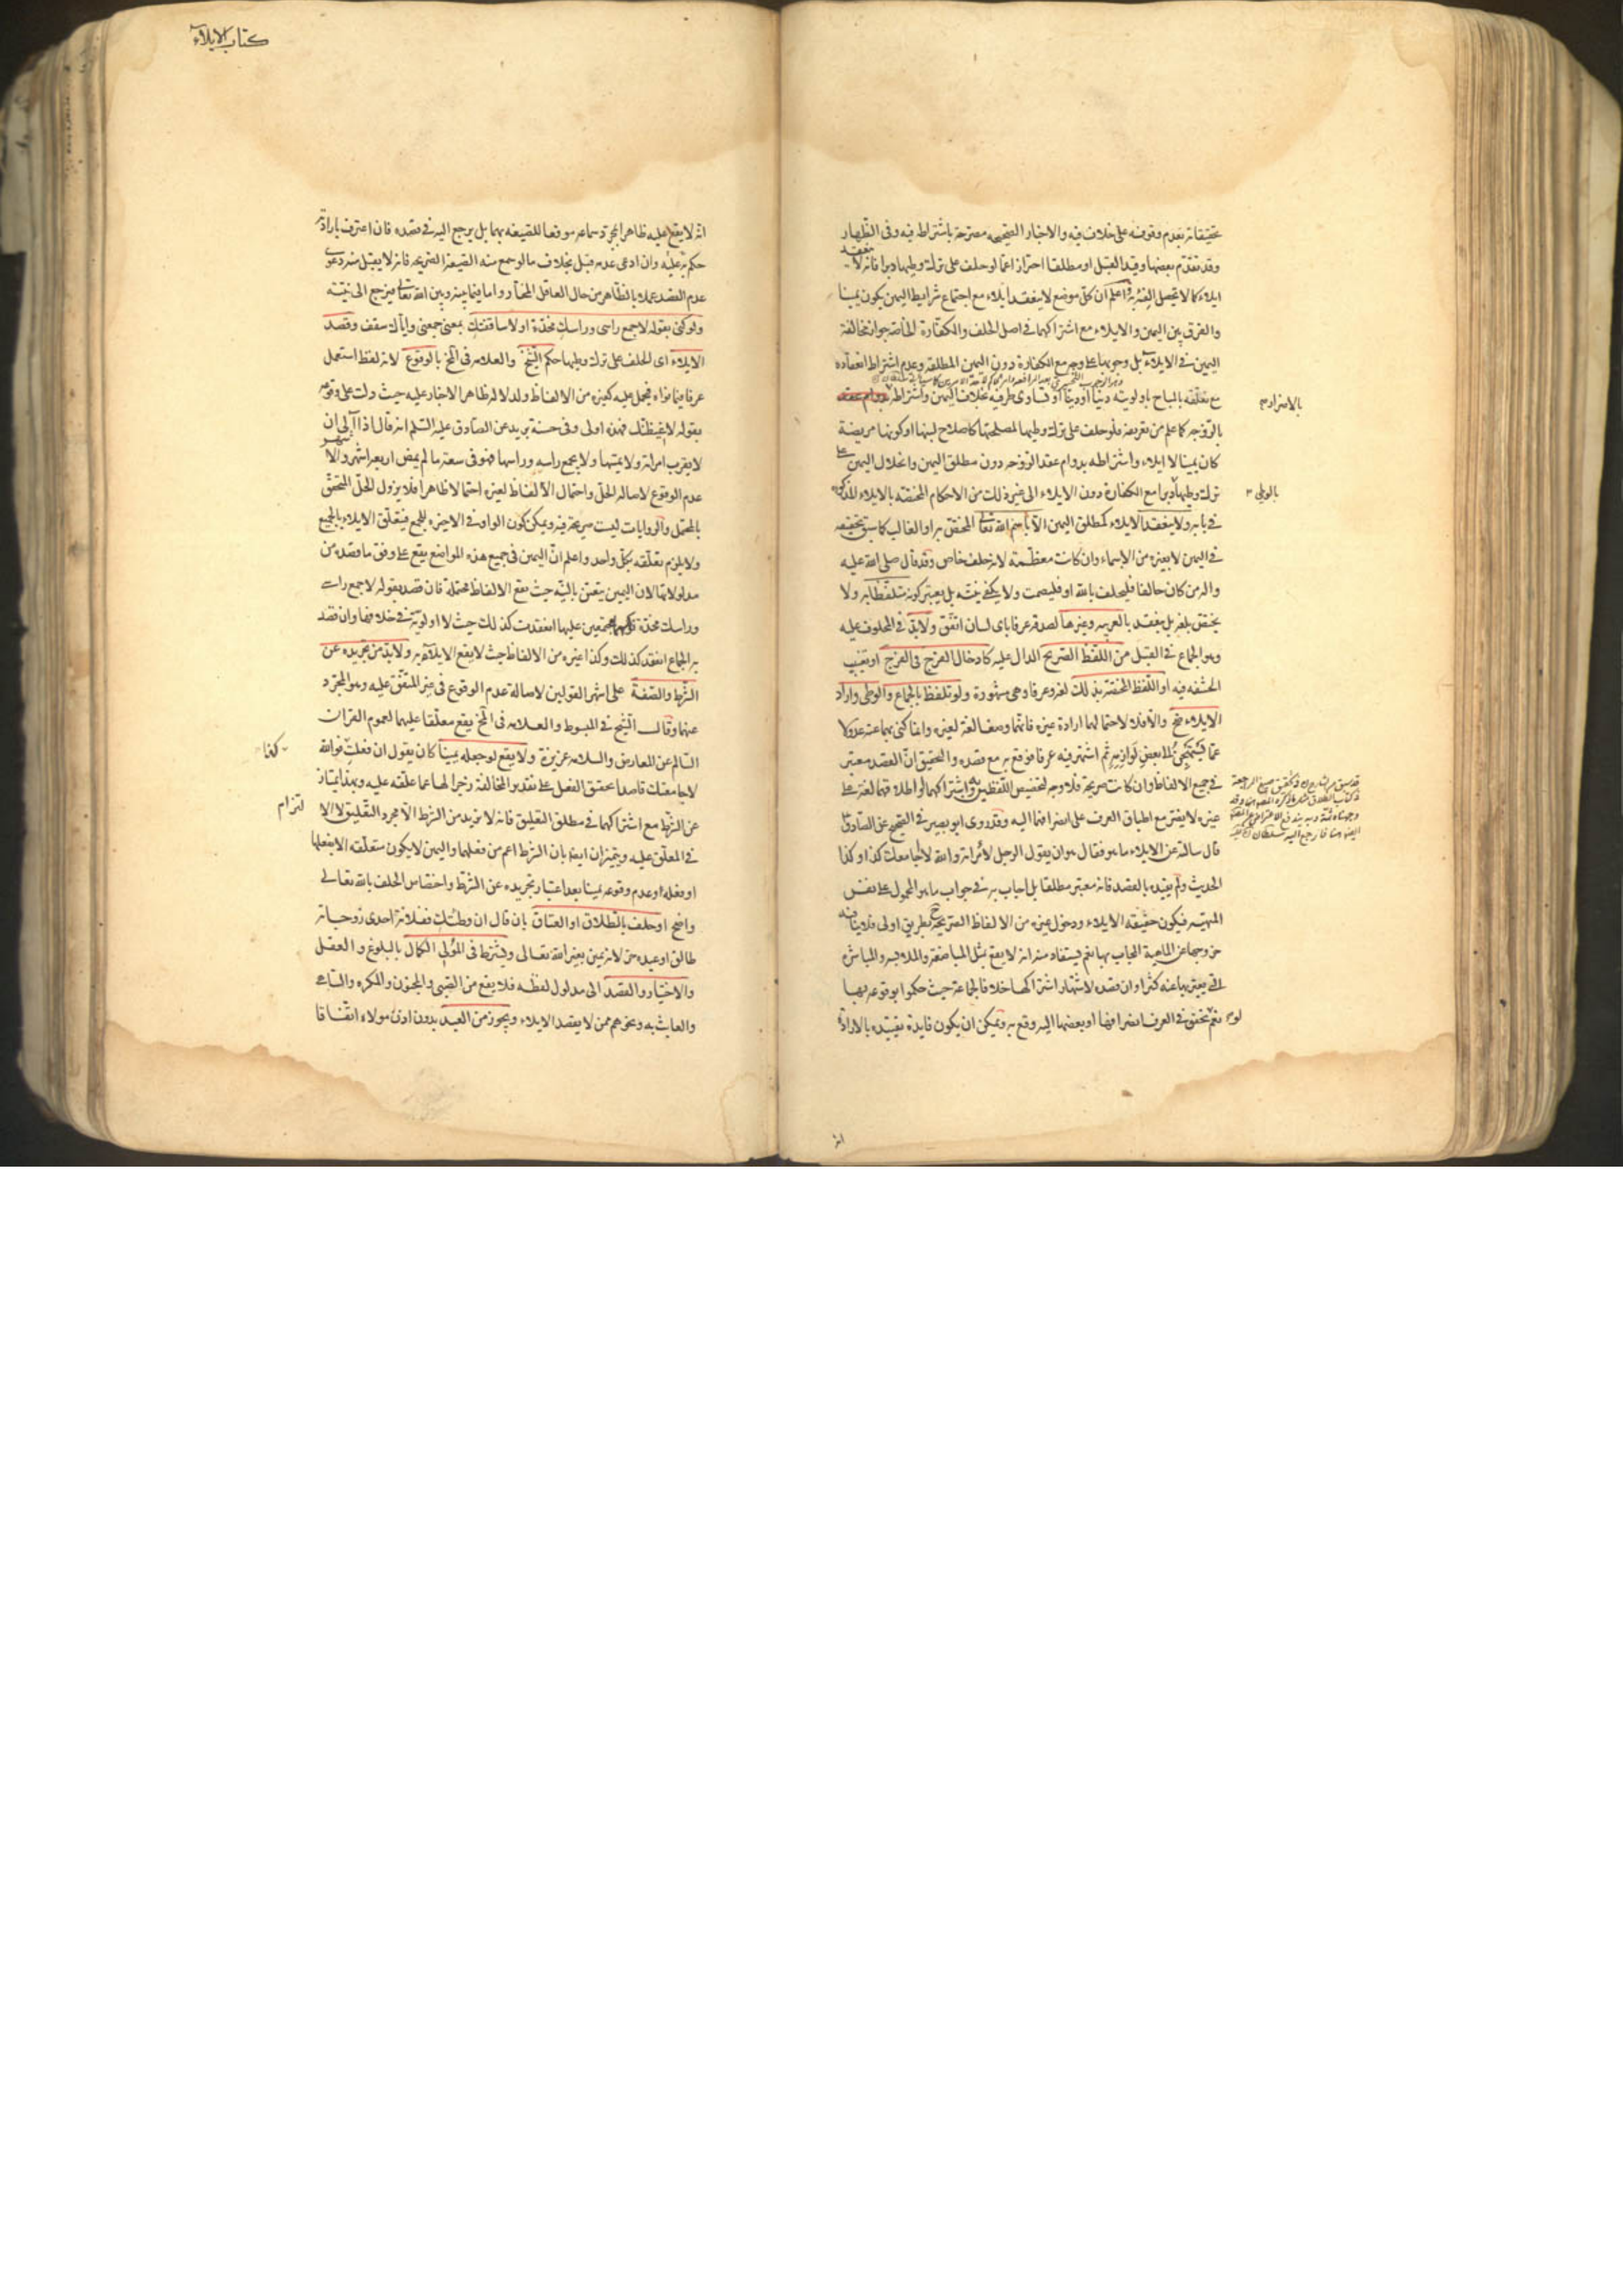 تحقيقاته بعدم وقوفه على خلاف فيه والاخبار الصحيحه مصرحة باشتراطه فيه وفى الظهار
وقد تقدم بعضها وقيد القبل او مطلقا احترازا عما لو حلف على ترك وطيها دبرا فانه لا ينعقد
ايلاء كما لا تحصل الفئة به واعلم ان كل موضع لا ينعقد ايلاء مع اجتماع شرايط اليمين يكون يمينا
والفرق بين اليمين والايلاء مع اشتراكهما فى اصل الحلف والكفارة الخاصة جواز مخالفة
اليمين فى الايلاء بل وجوبها على وجه مع الكفارة دون اليمين المطلقة وعدم اشتراط انعقاده
مع تعلقه بالمباح باولويته دينا او دنيا او تساوى طرفيه بخلاف اليمين واشتراطه بدوام عقد
بالاضرار م
بالزوجه كما علم من تعريفه فلو حلف على ترك وطيها لمصلحتها كاصلاح لبنها او كونها مريضة
كان يمينا لا ايلاء واشتراطه بدوام عقد الزوجه دون مطلق اليمين وانحلال اليمين على
ترك وطيها دبرا مع الكفارة دون الايلاء الى غير ذلك من الاحكام المختصة بالايلاء المذكورة
بالوطى
فى بابه ولا ينعقد الايلاء كمطلق اليمين الا باسم الله تعالى المختص به او الغالب كما سبق تحقيقه
فى اليمين لا بغيره من الاسماء وان كانت معظمة لانه حلف خاص وقد قال صلى الله عليه
واله من كان حالفا فليحلف بالله او فليصمت ولا يكفى نيته بل يعتبر كونه متلفظا به ولا
يختص بلغة بل ينعقد بالعربيه وغيرها لصدقه عرفا باى لسان اتفق ولا بد فى المحلوف عليه
وهو الجماع فى القبل من اللفظ الصريح الدال عليه كادخال الفرج فى الفرج او تغييب
الحشفه فيه او اللفظ المختص بذلك لغة وعرفا وهى مشهورة ولو تلفظ بالجماع والوطى واراد
الايلاء صح والا فلا لاحتمالهما ارادة غيره فانهما وضعا لغة لغيره وانما كنى بهما عنه عدولا
عما يستهجن الى بعض لوازمه ثم اشتهر فيه عرفا فوقع به مع قصده والتحقيق ان القصد معتبر
فى جميع الالفاظ وان كانت صريحة فلا وجه لتخصيص اللفظين به واشتراكهما او اطلاقهما لغة على
غيره لا يضر مع اطباق العرف على انصرافهما اليه وقد روى ابو بصير فى الصحيح عن الصادق ع
قال سالته عن الايلاء ما هو فقال هو ان يقول الرجل لامراته والله لا اجامعك كذا وكذا
الحديث ولم يقيده بالقصد فانه معتبر مطلقا بل اجاب به فى جواب ما هو المحمول على نفس
المهية فيكون حقيقه الايلاء ودخول غيره من الالفاظ الصريحة ح بطريق اولى فلا ينافيه
خروجها عن الماهية المجاب بها نعم يستفاد منه انه لا يقع بمثل المباضعة والملامسه والمباشرة
التى يعبر بها عنه كثيرا وان قصده لاشتهار اشتراكها خلافا لجماعة حيث حكموا بوقوعه بها
نعم لو تحقق فى العرف انصرافها او بعضها اليه وقع به ويمكن ان يكون فايدة تقييده بالارادة
انه
كتاب الايلاء
انه لا يقع عليه ظاهرا بمجرد سماعه موقعا للصيغه بهما بل يرجع اليه فى قصده فان اعترف بارادته
حكم به عليه وان ادعى عدمه قبل بخلاف ما لو سمع منه الصيغة الصريحه فانه لا يقبل منه دعوى
عدم القصد عملا بالظاهر من حال العاقل المختار واما فيما بينه وبين الله تعالى فيرجع الى نيته
ولو كنى بقوله لا جمع راسى وراسك مخدة او لا ساقفتك بمعنى جمعنى واياك سقف وقصد
الايلاء اى الحلف على ترك وطيها حكم الشيخ والعلامه فى المخ بالوقوع لانه لفظ استعمل
عرفا فيما نواه فيحمل عليه كغيره من الالفاظ ولدلالة ظاهر الاخبار عليه حيث دلت على وقوعه
بقوله لاغيظنك فهذه اولى وفى حسنة بريد عن الصادق عليه السلم انه قال اذا آلى ان
لا يقرب امراته ولا يمسها ولا يجمع راسه وراسها فهو فى سعة ما لم يمض اربعة اشهر والاشهر
عدم الوقوع لاصالة الحل واحتمال الالفاظ لغيره احتمالا ظاهرا فلا يزول الحل المتحقق
بالمحتمل والروايات ليست صريحة فيه ويمكن كون الواو فى الاخيرة للجمع فيتعلق الايلاء بالجميع
ولا يلزم تعلقه بكل واحد واعلم ان اليمين فى جميع هذه المواضع يقع على وفق ما قصده من
مدلولاتها لان اليمين يتعين بالنية حيث تقع الالفاظ محتملة فان قصد بقوله لا جمع راسى
وراسك مخدة نومهما مجتمعين عليها انعقدت كذلك حيث لا اولوية فى خلافها وان قصد
به الجماع انعقد كذلك وكذا غيره من الالفاظ حيث لا يقع الايلاء به ولا بد من تجريده عن
الشرط والصفة على اشهر القولين لاصالة عدم الوقوع فى غير المتفق عليه وهو المجرد
عنهما وقال الشيخ فى المبسوط والعلامه فى المخ يقع معلقا عليهما لعموم القران
السالم عن المعارض والسلامه عزيزة ولا يقع لو جعله يمينا كان يقول ان فعلت كذا فوالله
لا جامعتك قاصدا تحقيق الفعل على تقدير المخالفة زجرا لها عما علقه عليه وبهذا يمتاز
عن الشرط مع اشتراكهما فى مطلق التعليق فانه لا يريد من الشرط الا مجرد التعليق لا الالتزام
فى المعلق عليه ويتميزان ايضا بان الشرط اعم من فعلهما واليمين لا يكون متعلقه الا بفعلها
او فعله وعدم وقوعه يمينا بعد اعتبار تجريده عن الشرط واختصاص الحلف بالله تعالى
واضح او حلف بالطلاق او العتاق بان قال ان وطئتك ففلانة احدى زوجاته
طالق او عبده حر لانه يمين بغير الله تعالى ويشترط فى المولى الكمال بالبلوغ والعقل
والاختيار والقصد الى مدلول لفظه فلا يقع من الصبى والمجنون والمكره والساهى
والعابث به ونحوهم ممن لا يقصد الايلاء ويجوز من العبد بدون اذن مولاه اتفاقا